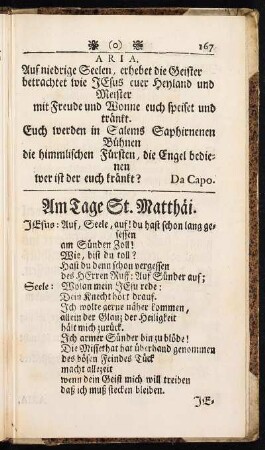 (o) 167
ARIA.
Auf niedrige Seelen, erhebet die Geister
betrachtet wie JEsus euer Heyland und
Meister
mit Freude und Wonne euch speiset und
tränkt.
Euch werden in Salems Saphirnenen
Bühnen
die himmlischen Fürsten, die Engel bedie-
nen
wer ist der euch kränkt? Da Capo.
Am Tage St. Matthäi.
JEsus: Auf, Seele, auf! du hast schon lang ge-
sessen
am Sünden Zoll!
Wie, bist du toll?
Hast du denn schon vergessen
des HErren Ruff: Auf Sünder auf;
Seele: Wolan mein JEsu rede:
Dein Knecht hört drauf.
Ich wolte gerne näher kommen,
allein der Glanz der Heiligkeit
hält mich zurück.
Ich armer Sünder bin zu blöde!
Die Missethat hat überhand genommen
des bösen Feindes Tück
macht allezeit
wenn dein Geist mich will treiben
daß ich muß stecken bleiben.
JE-